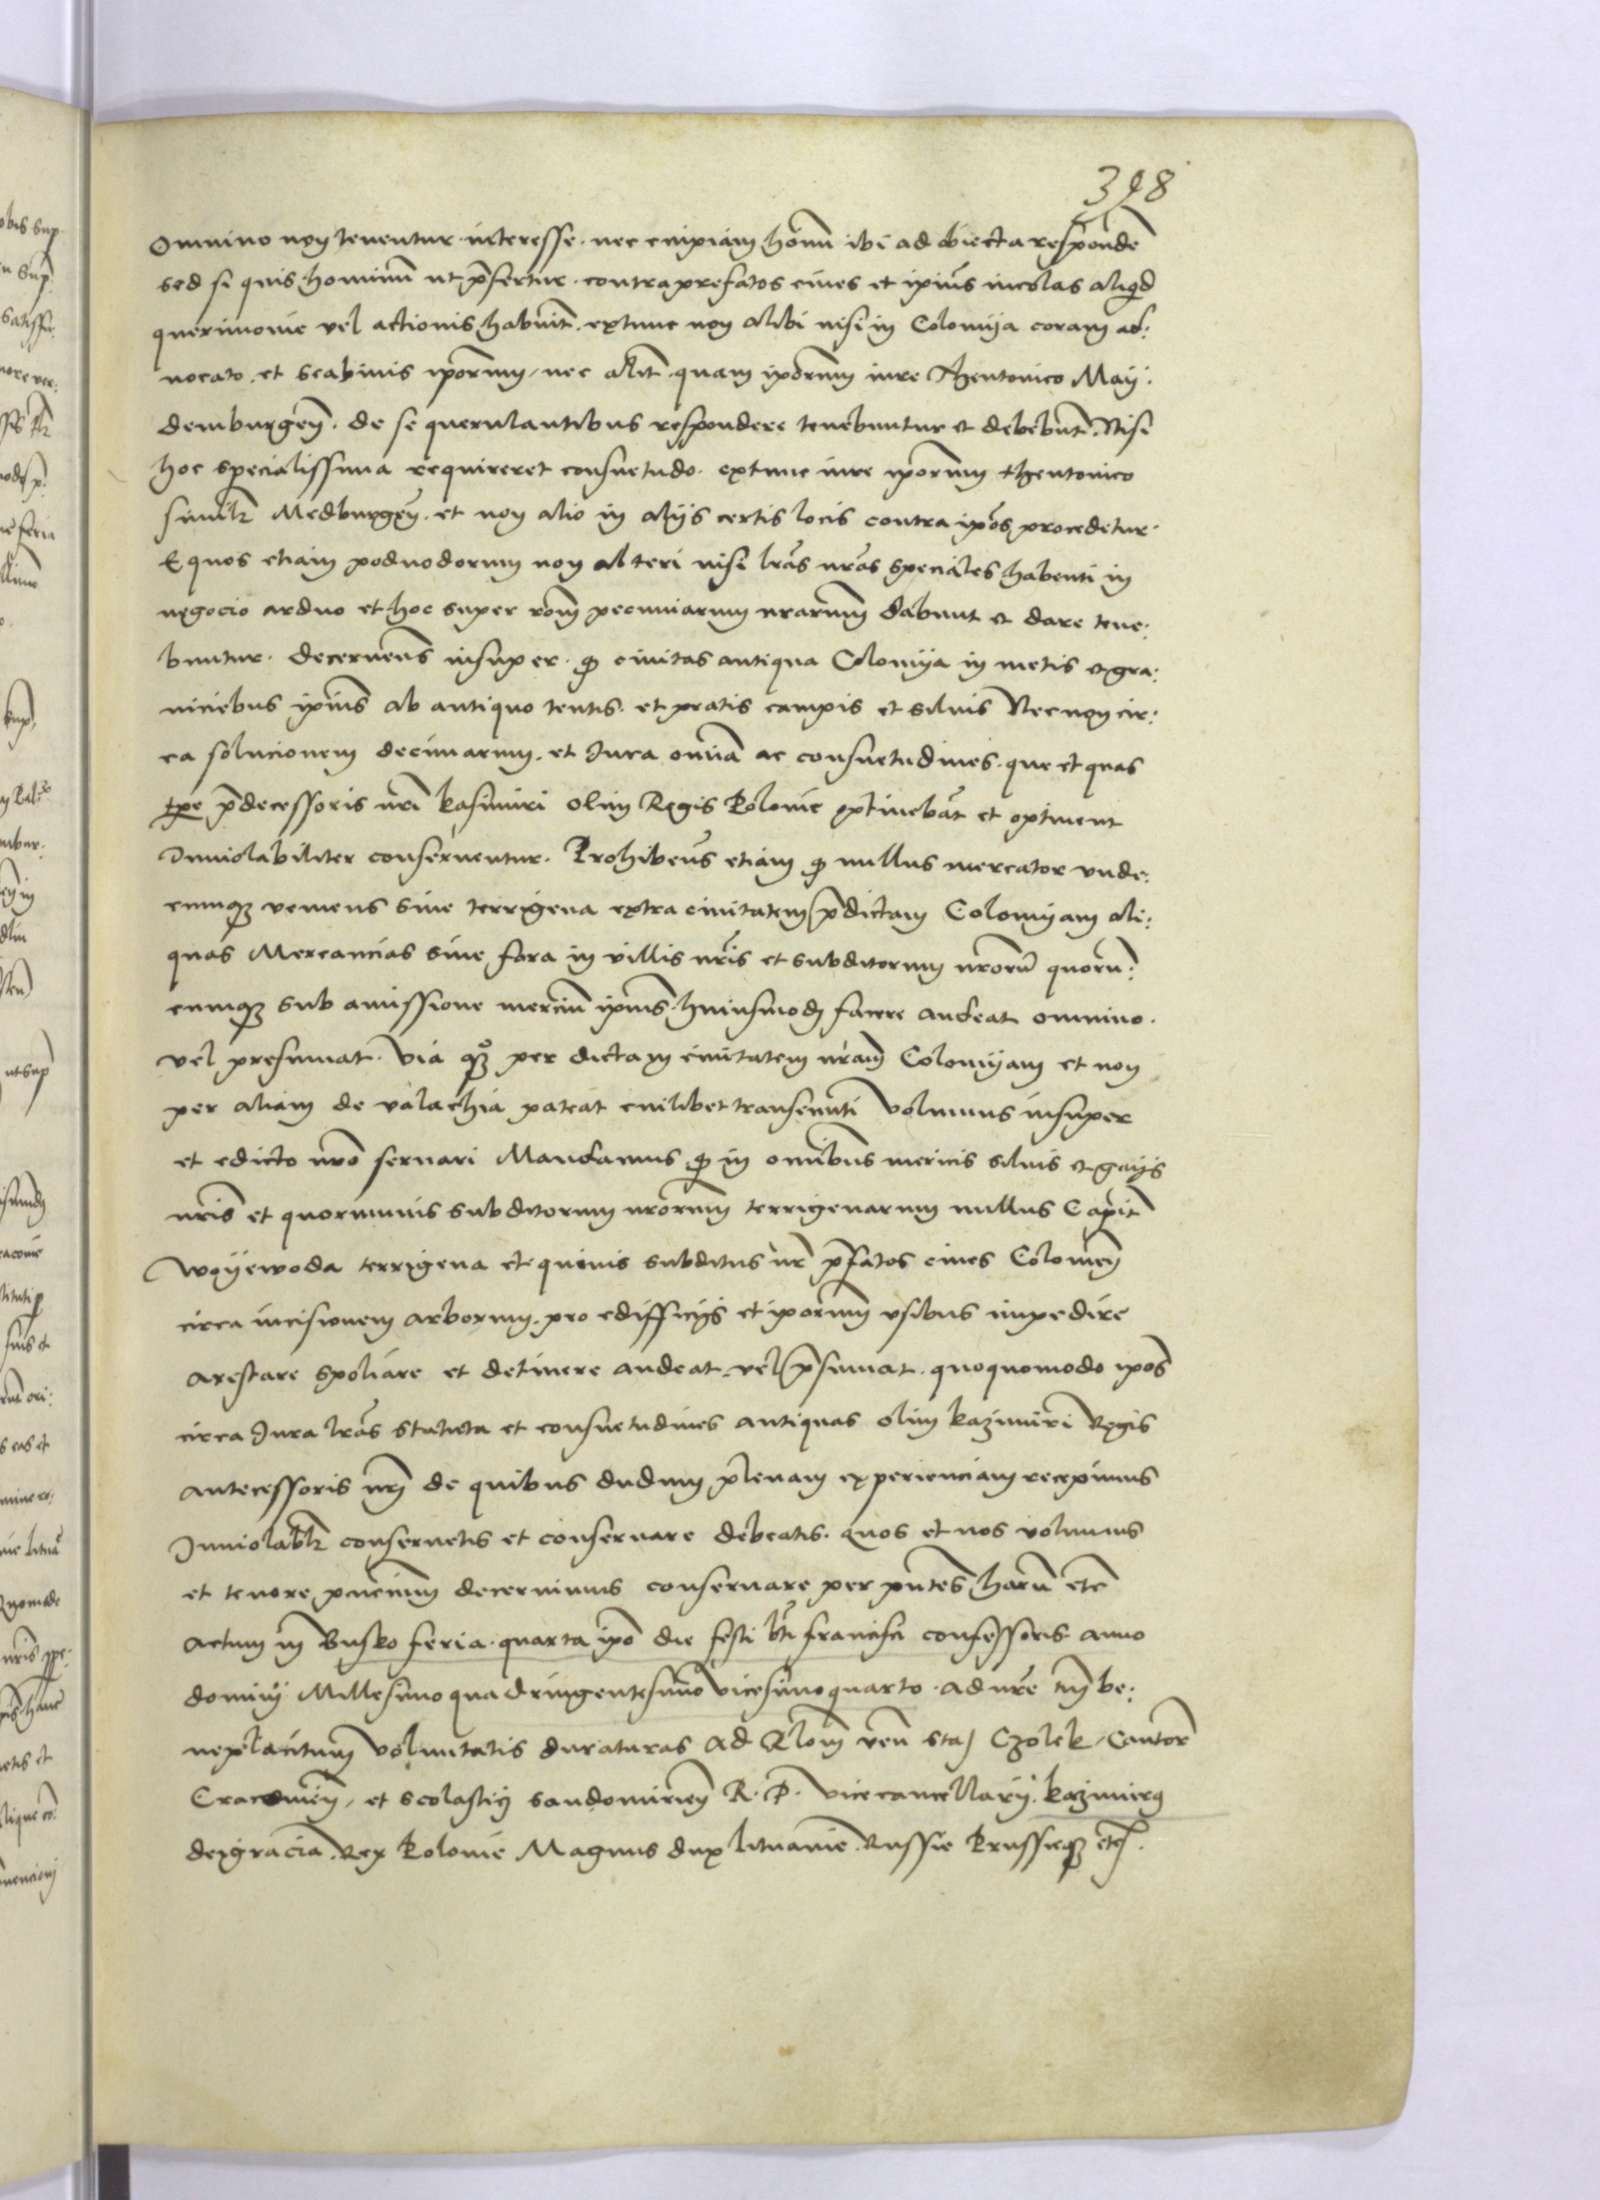 398
Omnino non tenentur interesse. nec cuipiam homini ibi ad obiecta responde
sed si quis hominum ut p̃fertur. contra prefatos ciues et ipius incolas aliqd
querimonie vel actionis habuit. extunc non alibi nisi in Colomija coram ad:
uocato. et scabinis ipõrum, nec alit quam ipõrum iure Theutonico May:
demburgeñ. de se querulantibus respondere tenebuntur et debebunt. Nisi
hoc specialissima requireret consuetudo. extunc iure ipõrum theutonico
similr̃ Medburgeñ. et non alio in alijs certis locis contra ipõs procedetur.
Equos etiam poduodorum non alteri nisi lrãs nrãs speciales habenti in
negocio arduo et hoc super rõm pecuniarum nrarum dabunt et dare tene:
buntur. decernens insuper. q̃ ciuitas antiqua Colomija in metis et gra:
niciebus ipius ab antiquo tentis. et pratis campis et siluis Nec non cir:
ca solucionem decimarum. et Jura omia ac consuetudines. que et quas
tpẽ p̃decessoris nri kasimiri olim Regis Polonie optinebãt et optinent
Inuiolabiliter conseruentur. Prohibens etiam q̃ nullus mercator vnde:
cumq3 veniens siue terrigena extra ciuitatem p̃dictam Colomijam ali:
quas Mercancias siue fora in villis nris et subditorum nrorũ quorũ:
cumq3 sub amissione mercium ipius huiusmodi facere audeat omnino.
vel presumat. via q3 per dictam ciuitatem nram Colomijam et non
per aliam de valachia pateat cuilibet transeunti volumus insuper
et edicto nro seruari Mandamus q̃ in omibus mericis siluis et gaijs
nris et quorumuis subditorum nrorum terrigenarum nullus Capit
woyewoda terrigena et quiuis subditus nr p̃fatos ciues Colomeñ
circa incisionem arborum. pro edifficijs et ipõrum vsibus impedire
arestare spoliare et detinere audeat. vel p̃sumat. quoquomodo ipõs
circa Jura lrãs statuta et consuetudines antiquas olim kazimiri Regis
antecessoris nri de quibus dudum plenam experienciam recepimus
Inuiolablr̃ conseruetis et conseruare debeatis. quos et nos volumus
et tenore pñcium decernimus conseruare per pñtes harũ etc
actum in Busko feria. quarta ipo die festi bti francisci confessoris anno
domini Millesimo quadringentesimo vicesimo quarto. ad nre tm be:
neplacitum voluntatis duraturas ad Rlom ven sta Czolek, Cantor
Cracouieñ, et scolastici sandomirieñ R. P. vicecancellarij. kazimirg
dei gracia. Rex Polonie Magnus dux lituanie. Russie Prussieq3 etc.